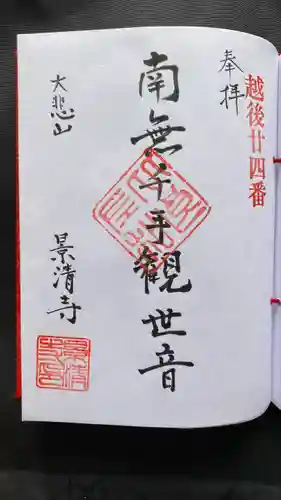 奉拝
越後廿四番
南無千手観世音
大悲山
景清寺